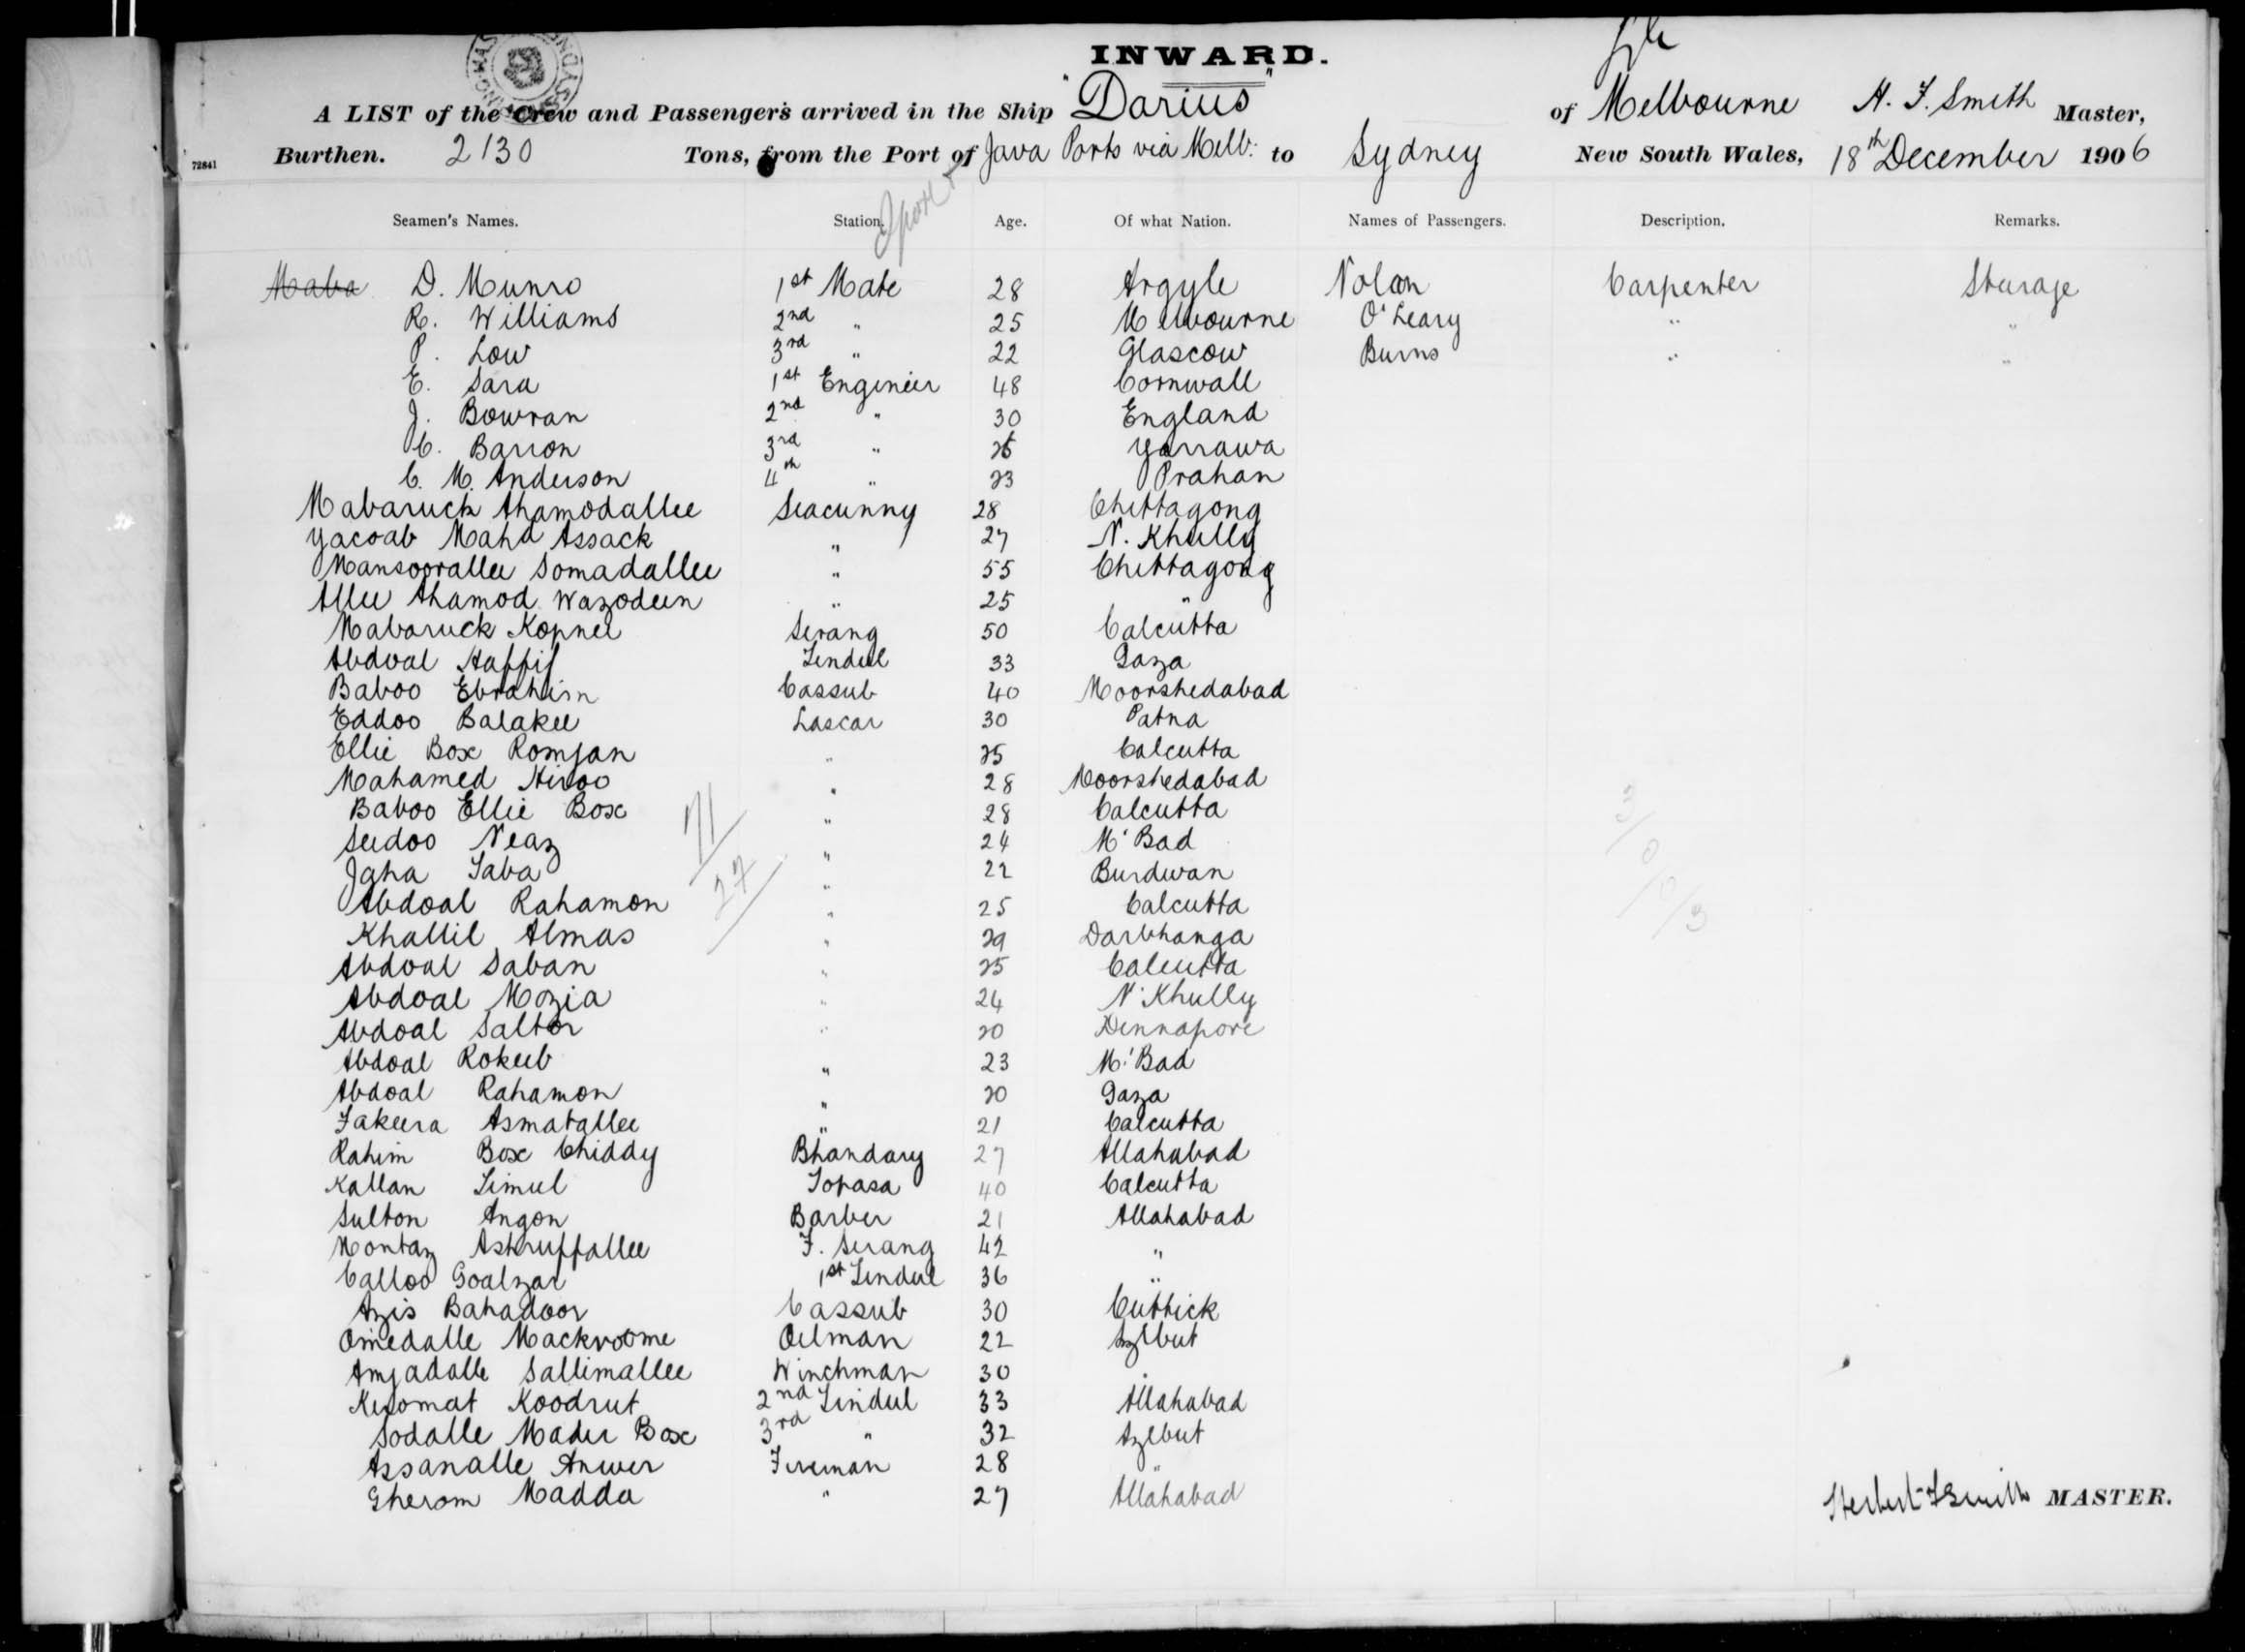 INWARD.
A LIST of the Crew and Passengers arrived in the Ship "Darius" of Melbourne H. F. Smith Master,
72841 Burthen. 2130 Tons, from the Port of Java Ports via Melb: to Sydney New South Wales, 18th December 1906
Seamen's Names. Station. Age. Of what Nation. Names of Passengers. Description. Remarks.
Maba D. Munro 1st Mate 28 Argyle Nolan Carpenter Steerage
R. Williams 2nd " 25 Melbourne O'Leary " "
P. Low 3rd " 22 Glascow Burns " "
E. Sara 1st Engineer 48 Cornwall
J. Bowran 2nd " 30 England
C. Barron 3rd " Yarrawa
C. M. Anderson 4th " 23 Prahan
Mabaruck Ahamodallee Seacunny 28 Chittagong
Yacoab Maha Assack " 27 N. Khully
Mansoorallee Somadallee " 55 Chittagong
Allee Ahamod Wazodeen " 25 "
Mabaruck Kopnee Serang 50 Calcutta
Abdoal Haffif Tindel 33 Gaza
Baboo Ebrahim Cassub 40 Moorshedabad
Eddoo Balakee Lascar 30 Patna
Ellie Box Romjan " 25 Calcutta
Mahamed Hiroo " 28 Moorshedabad
Baboo Ellie Box " 28 Calcutta
Seedoo Neaz " 24 M'Bad
Jgha Taba " 22 Burdwan
Abdoal Rahamon " 25 Calcutta
Khallil Almas " 29 Darbhanga
Abdoal Saban " 25 Calcutta
Abdoal Mozia " 24 N'Khully
Abdoal Saltor " 20 Dinnapore
Abdoal Rokeeb " 23 M'Bad
Abdoal Rahamon " 20 Gaza
Fakeera Asmatallee " 21 Calcutta
Rahim Box Chiddy Bhandary 27 Allahabad
Kallan Timul Topasa 40 Calcutta
Sulton Angon Barber 21 Allahabad
Montaz Ashruffallee F. Serang 42 "
Calloo Goalzar 1st Tindel 36 "
Azis Bahadoor Cassub 30 Cuttick
Omedalle Mackroome Oilman 22 Azlbut
Amjadalle Sallimallee Winchman 30 "
Koodrut 2nd Tindel 33 Allahabad
Sodalle Mader Box 3rd " 32 Azlbut
Assanalle Anwer Fireman 28 "
Gherom Madda " 27 Allahabad
71
27
3/0/0/3
Herbert F Smith MASTER.